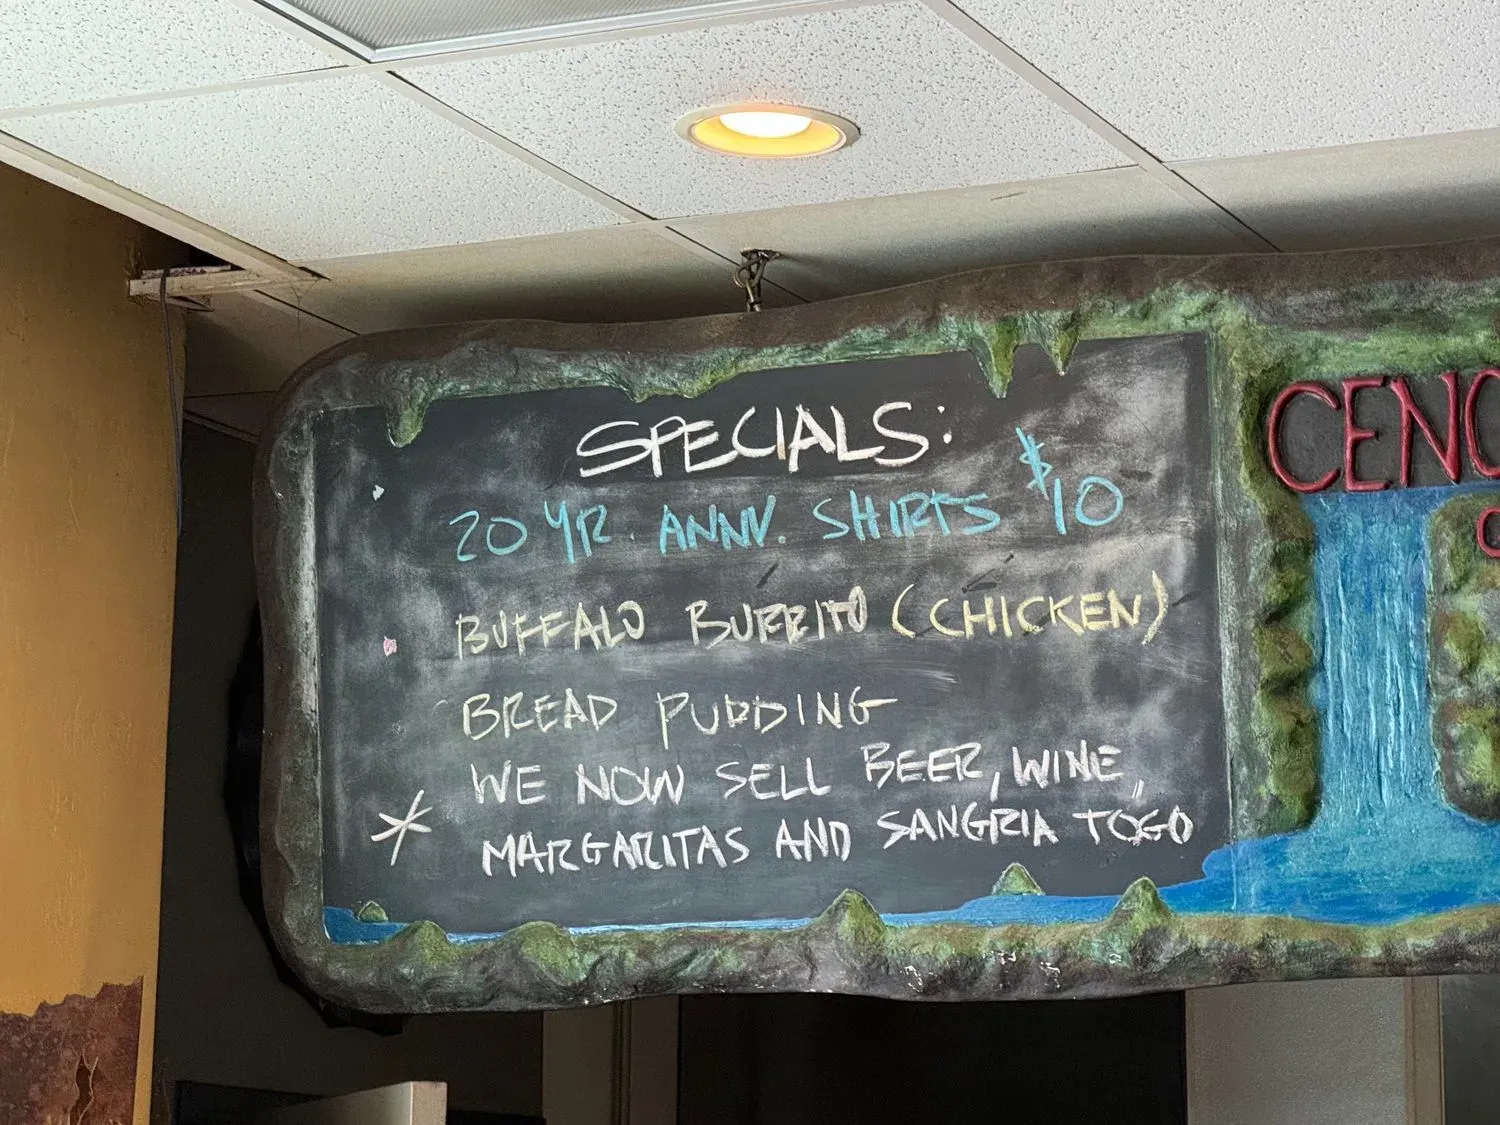 SPECIALS:
20 YR. ANNV. SHIRTS $10
BUFFALO BURRITO (CHICKEN)
BREAD PUDDING
WE NOW SELL BEER, WINE,
* MARGARITAS AND SANGRIA TOGO